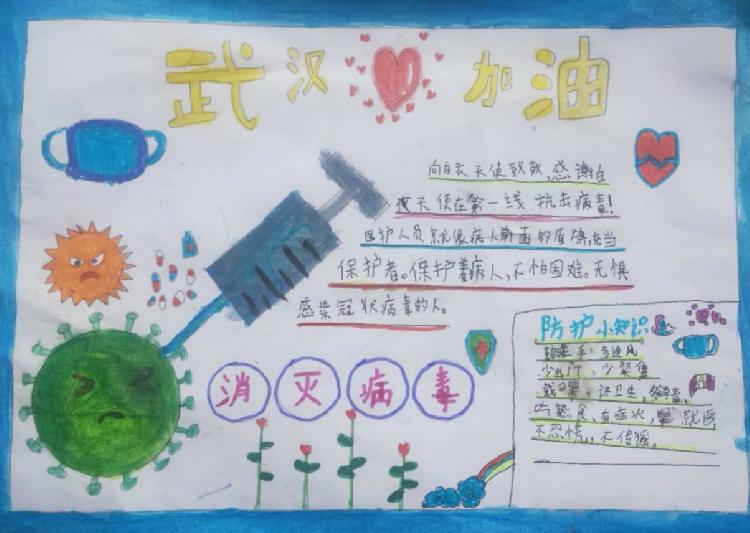 武汉加油
向白衣天使致敬,感谢白
衣天使在第一线抗击病毒!
医护人员就像病人前面的盾牌,充当
保护者。保护着病人,不怕困难。无惧
感染冠状病毒的人。
消灭病毒
防护小知识
勤洗手,多通风
少出门,少聚集
戴口罩,讲卫生,
吃熟食,有症状,就医
不恐慌,不传谣。